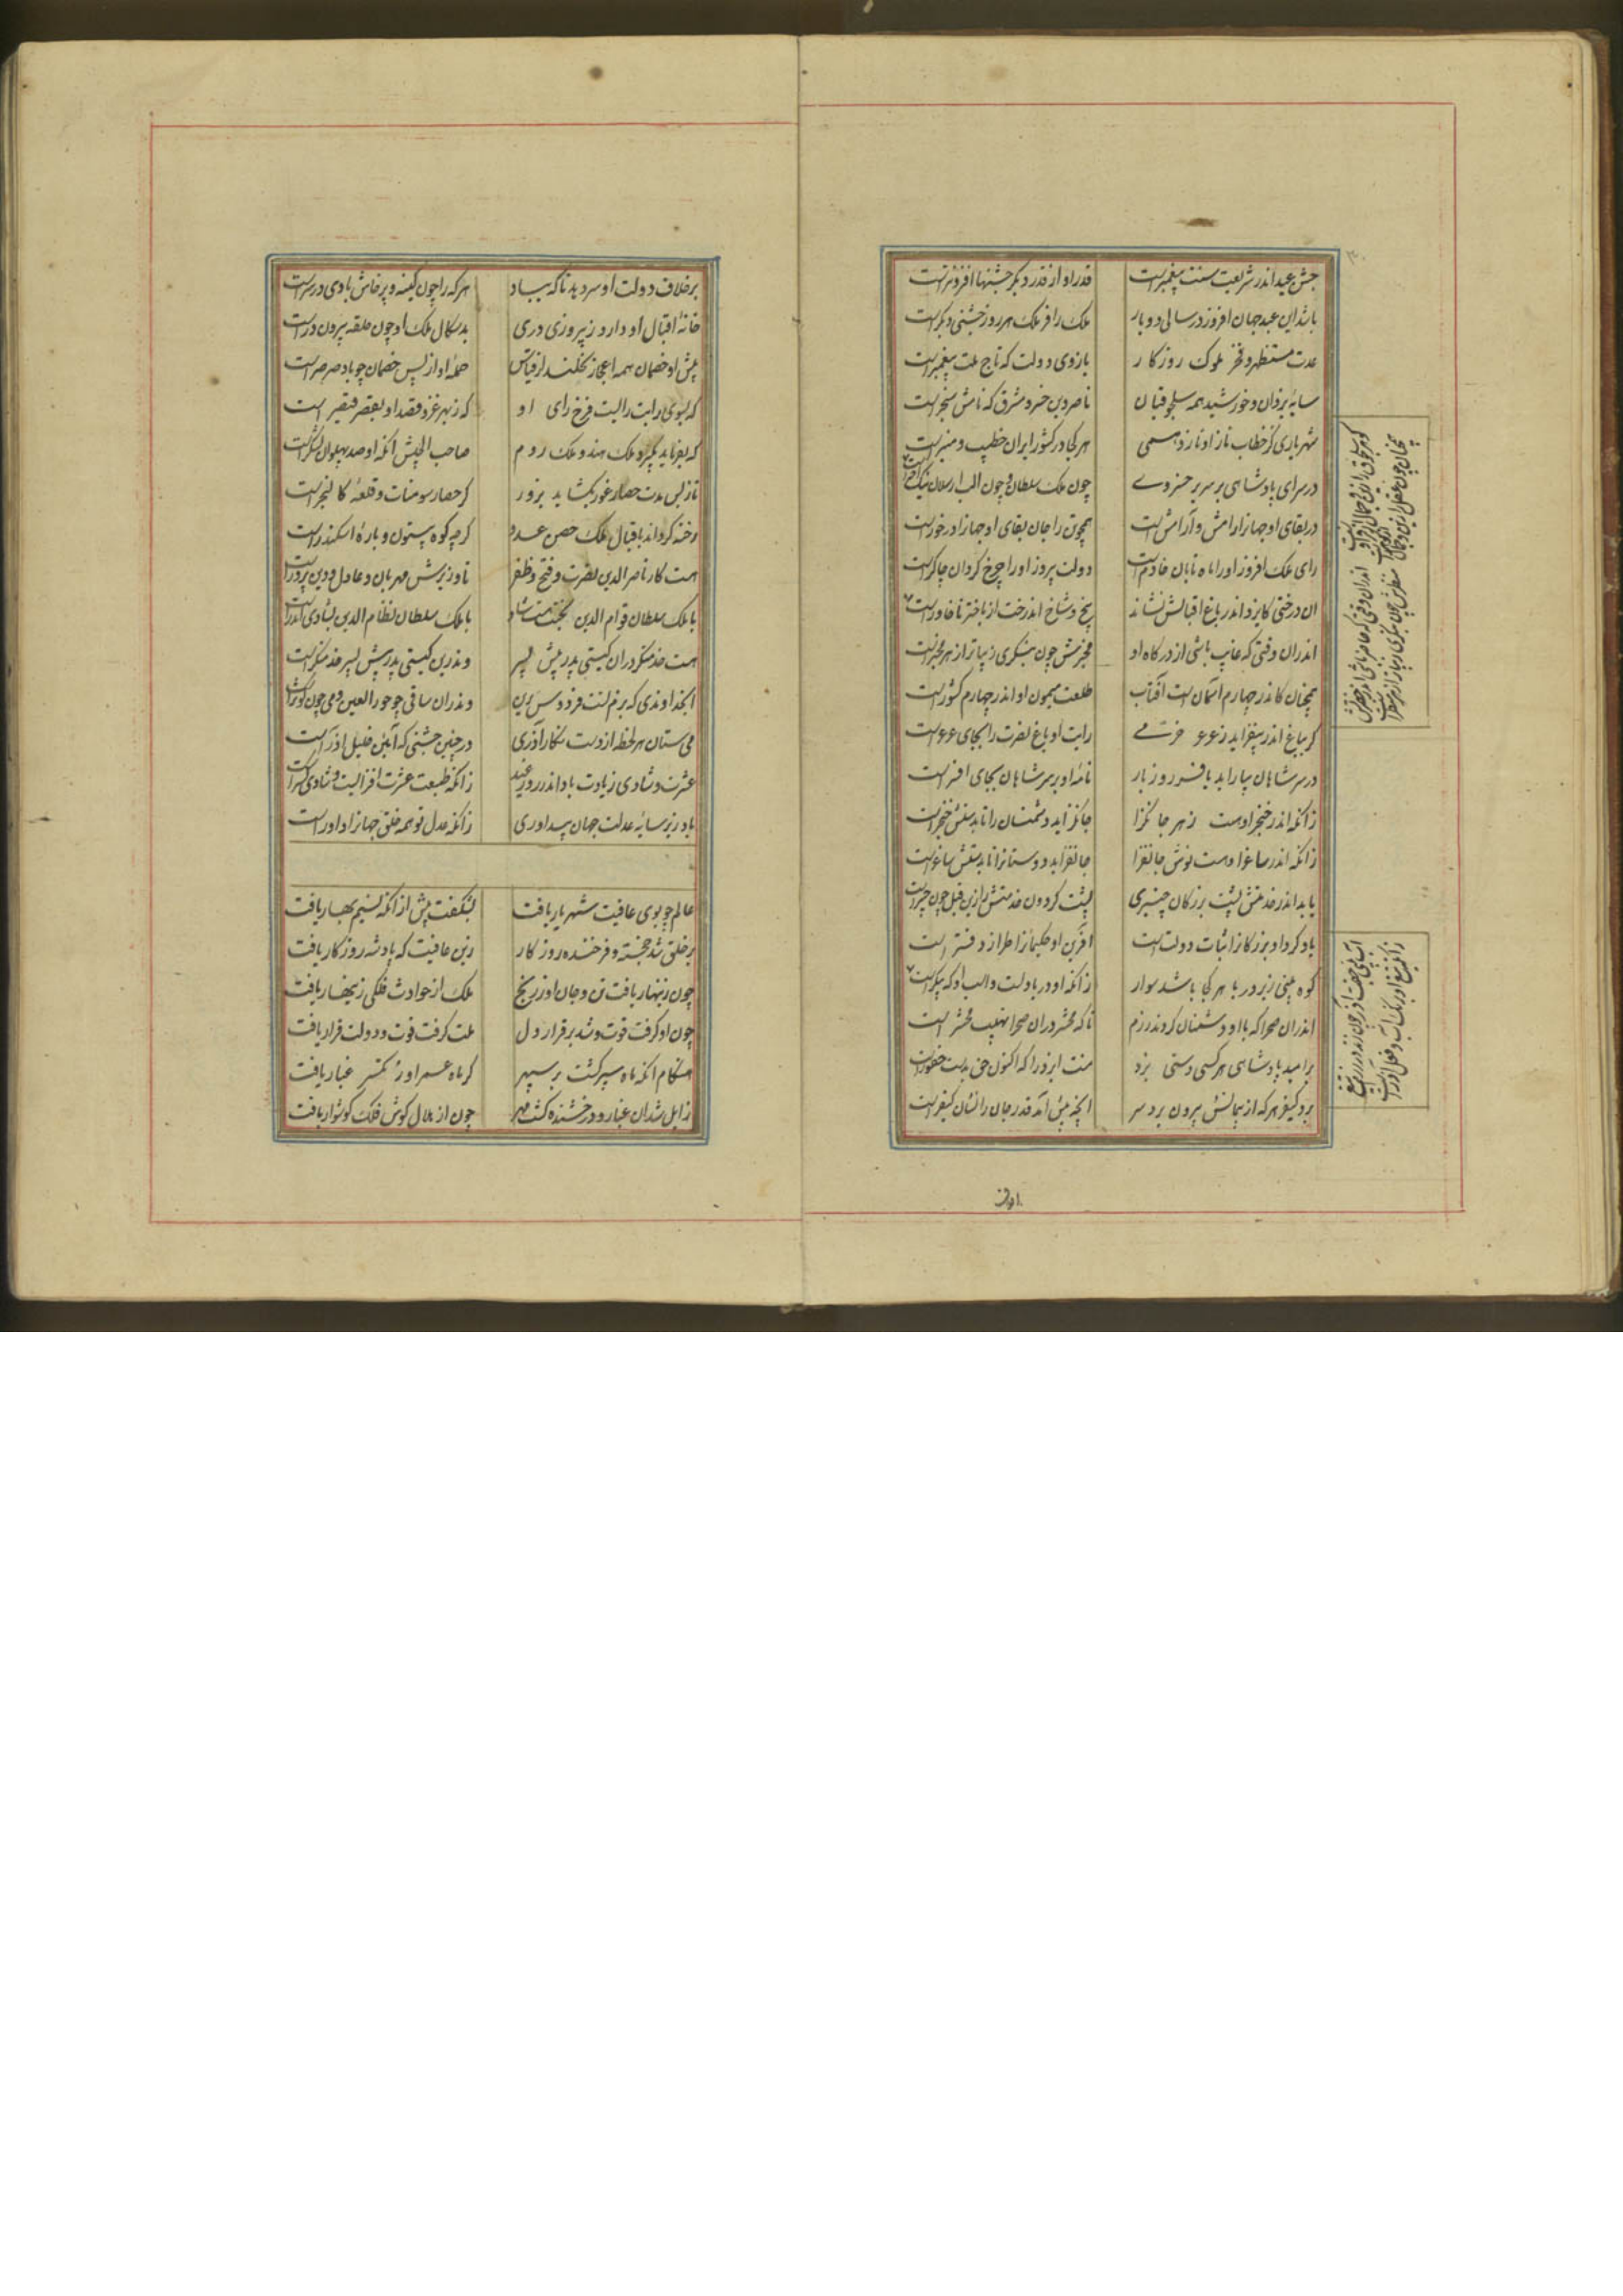 جشن عید اندر شریعت سنت پیغمبرست قدر او از قدر دیگر جشنها افزونترست
باشد این عید جهان افروز در سالی دو بار ملک را فر ملک هر روز جشنی دیگرست
عدت مستظهر و فخر ملوک روزکار بازوی دولت که تاج ملت پیغمبرست
سایه یزدان و خورشید همه سلجوقیان ناصر دین خسرو مشرق که نامش سنجرست
شهریاری کز خطاب نازاو نازد همی هر کجا در کشور ایران خطیب و منبرست
در سرای پادشاهی بر سریر خسروے چون ملک سلطان و چون الب ارسلان نیک
در بقای او جهانرا رامش و آرامش است همچو تن را جان بقای او جهانرا درخورست
رای ملک افروز اورا ماه تابان خادم است دولت پیروز اورا چرخ کردان چاکرست
ان درختی کایزد اندر باغ اقبالش نشاند بیخ و شاخ اندرخت از باختر تا خاورست
اندران وقتی که غایب باشی از درکاه او مخبرش چون بنگری زیباتر از هر مخبرست
همچنان کاندر چهارم آسمان است آفتاب طلعت میمون او اندر چهارم کشورست
کر بباغ اندر بیفزاید زعرعر خرمے رایت او باغ نصرت را بجای عرعرست
در سر شاهان بیاراید بافسر روز بار نامه او بر سر شاهان بجای افسرست
زانکه اندر خنجر اوست زهر جانکزا جانکزاید دشمنان را تا بدستش خنجرست
زانکه اندر ساغر اوست نوش جانفزا جانفزاید دوستانرا تا بدستش ساغرست
باید اندر خدمتش پشت بزرکان چنبری پشت کردون خدمتش را زین قبل چون چنبرست
یاد کرد او بزرکانرا ثبات دولت است افرین او حکیمانرا طراز دفترست
کوه بینی زیر دریا هر کجا باشد سوار زانکه او دریا دلست واسب او که پیکرست
اندران صحرا که با او دشمنان کردند رزم تا که محشر دران صحرا نهیب محشرست
بر امید پادشاهی هر کسی دستی بزد منت ایزد را که اکنون حق بدست حقورست
برد کیفر هر که از پیمانش بیرون برد سر انچه پیش آمد قدرخان را نشان کیفرست
همچنان چون عقل را زین و جمال از کوهرست کوهر سلجوق را زین و جمال از فر اوست
منظرش چون بنگری زیباتر از هر منظرست اندران وقتی که حاضر باشی اندر حضرتش
زانکه تیغ او برنک آب و فعل آذرست
بر خلاف دولت او سر دهد ناکه بباد هر که را چون کینه و پرخاش بادی در سرست
خانه اقبال او دارد ز پیروزی دری بدسکال ملک او چون حلقه بیرون درست
پیش او خصمان همه اعجاز نخلند از قیاس حمله او از پس خصمان چو باد صرصرست
که بسوی رایت رایست فرخ رای او که زبهر غزو قصد او بقصر قیصرست
که بفرماید بکیرد ملک هند و ملک روم صاحب الجیش انکه او صد پهلوان لشکرست
تا نه بس مدت حصار غور بکشاید بزور کر حصار سومنات و قلعه کالنجرست
رخنه کرداند باقبال ملک حصن عدو کرچه کوه بیستون و باره اسکندرست
هست کار ناصر الدین نصرت و فتح و ظفر تا وزیرش مهربان و عادل و دین پرورست
با ملک سلطان قوام الدین بجنت هست شاد با ملک سلطان نظام الدین بشادی اندرست
هست خدمتکر دران کیتی پدر پیش پسر وندرین کیتی پدر پیش پسر خدمتکرست
ایخداوندی که بزم تست فردوس برین وندران ساقی چو حور العین و می چون کوثرست
می ستان هر لحظه از دست نکار آذری در چنین جشنی که آیین خلیل آذرست
عشرت و شادی زیادت باد اندر روز عید زانکه طبعت عشرت افزایست و شادی کسترست
باد زیر سایه عدلت جهان بیداوری زانکه عدل تو همه خلق جهانرا داورست
عالم چو بوی عافیت شهریار یافت بشکفت پیش از انکه نسیم بهار یافت
بر خلق شد خجسته و فرخنده روزکار زین عافیت که پادشه روزکار یافت
چون زینهار یافت تن و جان او ز رنج ملک از حوادث فلکی زینهار یافت
چون او کرفت قوت و شد برقرار دل ملت کرفت قوت و دولت قرار یافت
هنکام انکه ماه سپر کشت بر سپهر کر ماه عمر او ز کسر غبار یافت
زایل شد ان غبار و درخشنده کشت مهر چون از هلال کوش فلک کوشوار یافت